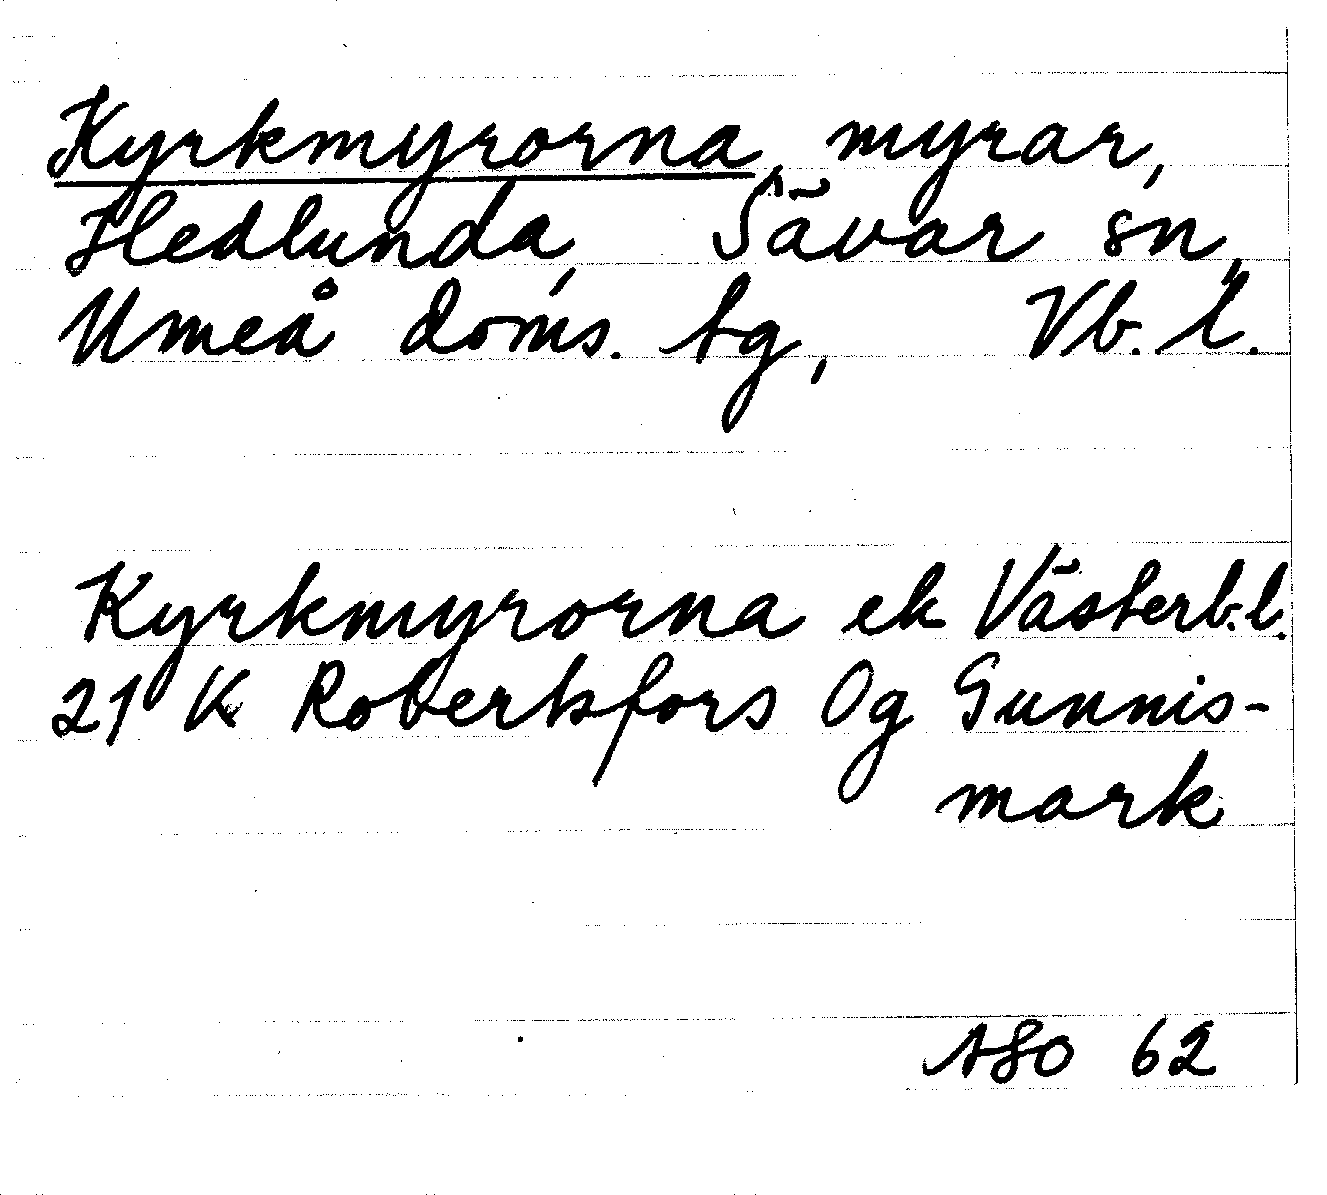 Kyrkmyrorna, myrar,
Hedlunda, Sävar sn,
Umeå doms. tg, Vb. l.
Kyrkmyrorna ek Västerb.l.
21 K Robertsfors Og Gunnis-
mark
ASO 62